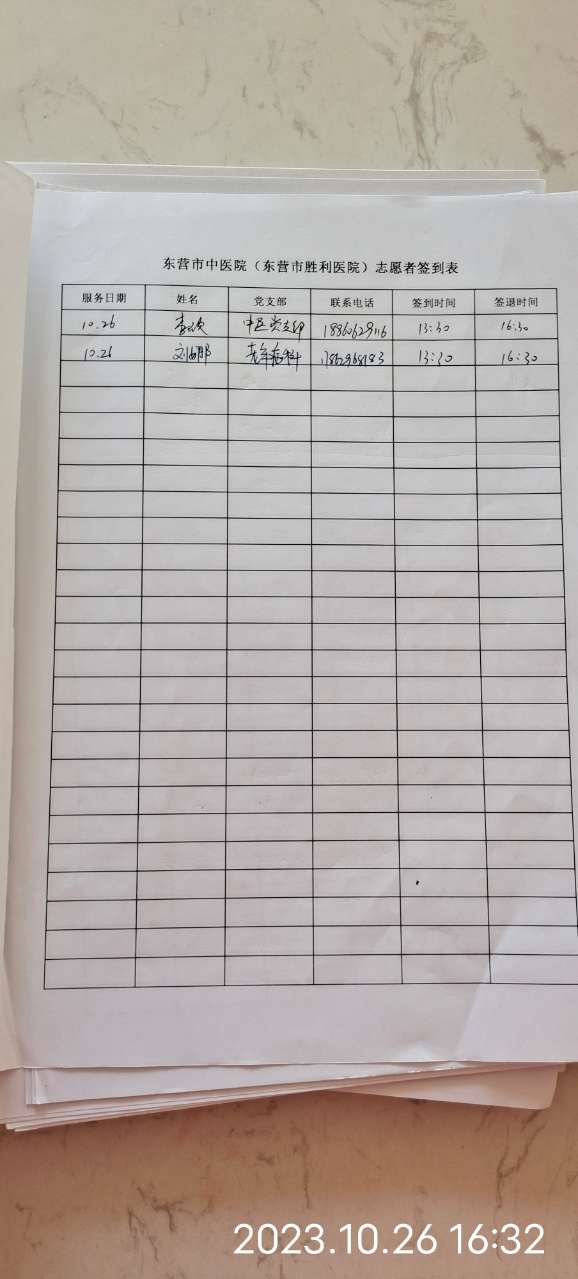 东营市中医院（东营市胜利医院）志愿者签到表
服务日期 姓名 党支部 联系电话 签到时间 签退时间
10.26 中医党支部 13:30 16:30
10.26 老年病科 13:30 16:30
2023.10.26 16:32